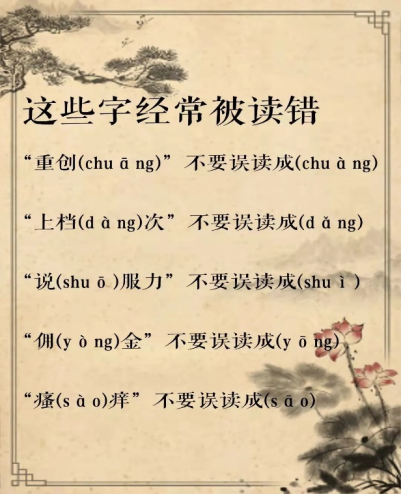 这些字经常被读错
“重创(chuāng)” 不要误读成(chuàng)
“上档(dàng)次” 不要误读成(dǎng)
“说(shuō)服力” 不要误读成(shuì)
“佣(yòng)金” 不要误读成(yōng)
“瘙(sào)痒” 不要误读成(sāo)